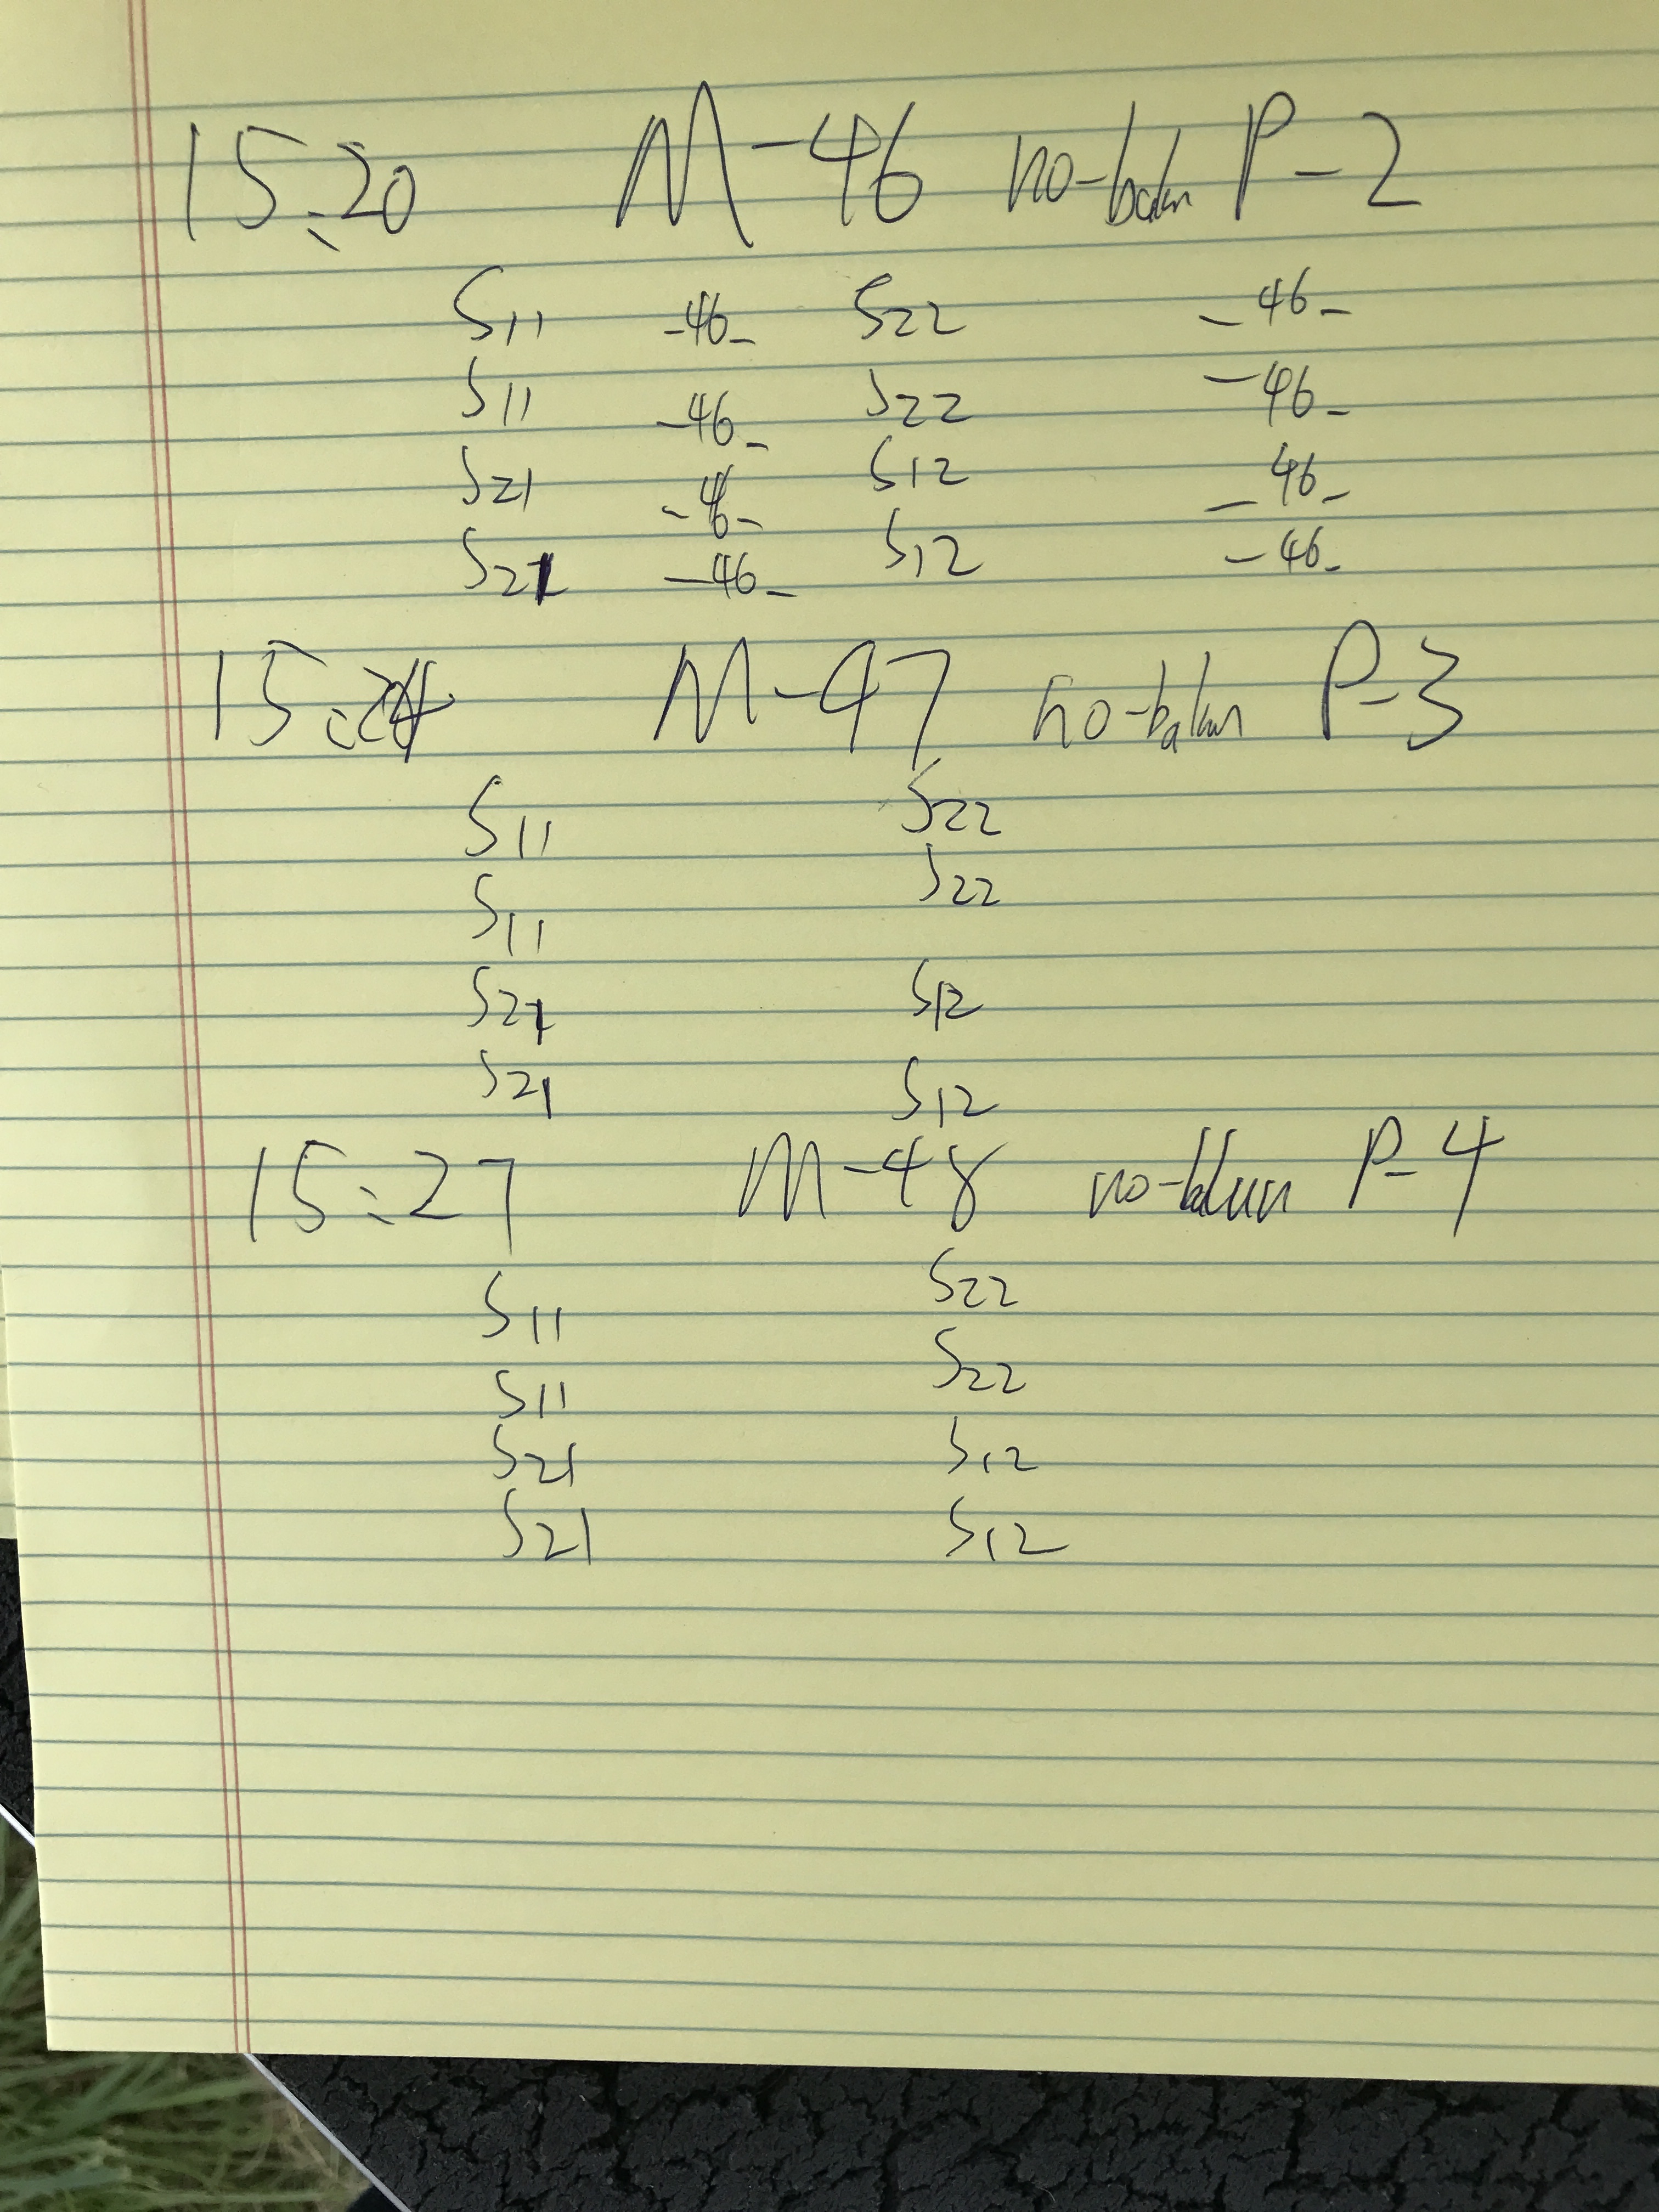 15:20 M-46 no-balun P-2
S11 -46- S22 -46-
S11 -46- S22 -46-
S21 -46- S12 -46-
S21 -46- S12 -46-
15:24 M-47 no-balun P-3
S11 S22
S11 S22
S21 S12
S21 S12
15:27 M-48 no-balun P-4
S11 S22
S11 S22
S21 S12
S21 S12